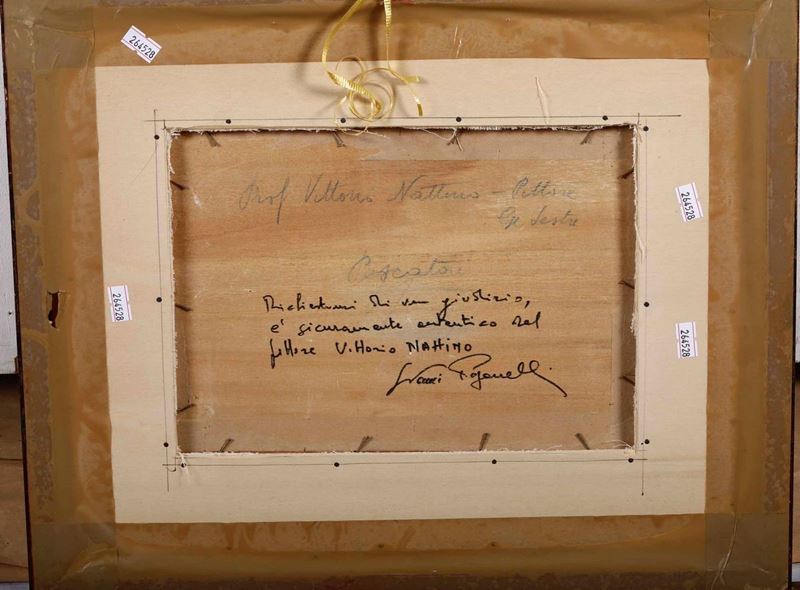 264528
Prof Vittorio Nattino - Pittore
Ge Sestri
264528
Pescatori
264528
Richiestomi di un giudizio,
è sicuramente autentico del
pittore Vittorio NATTINO
264528
Paganelli